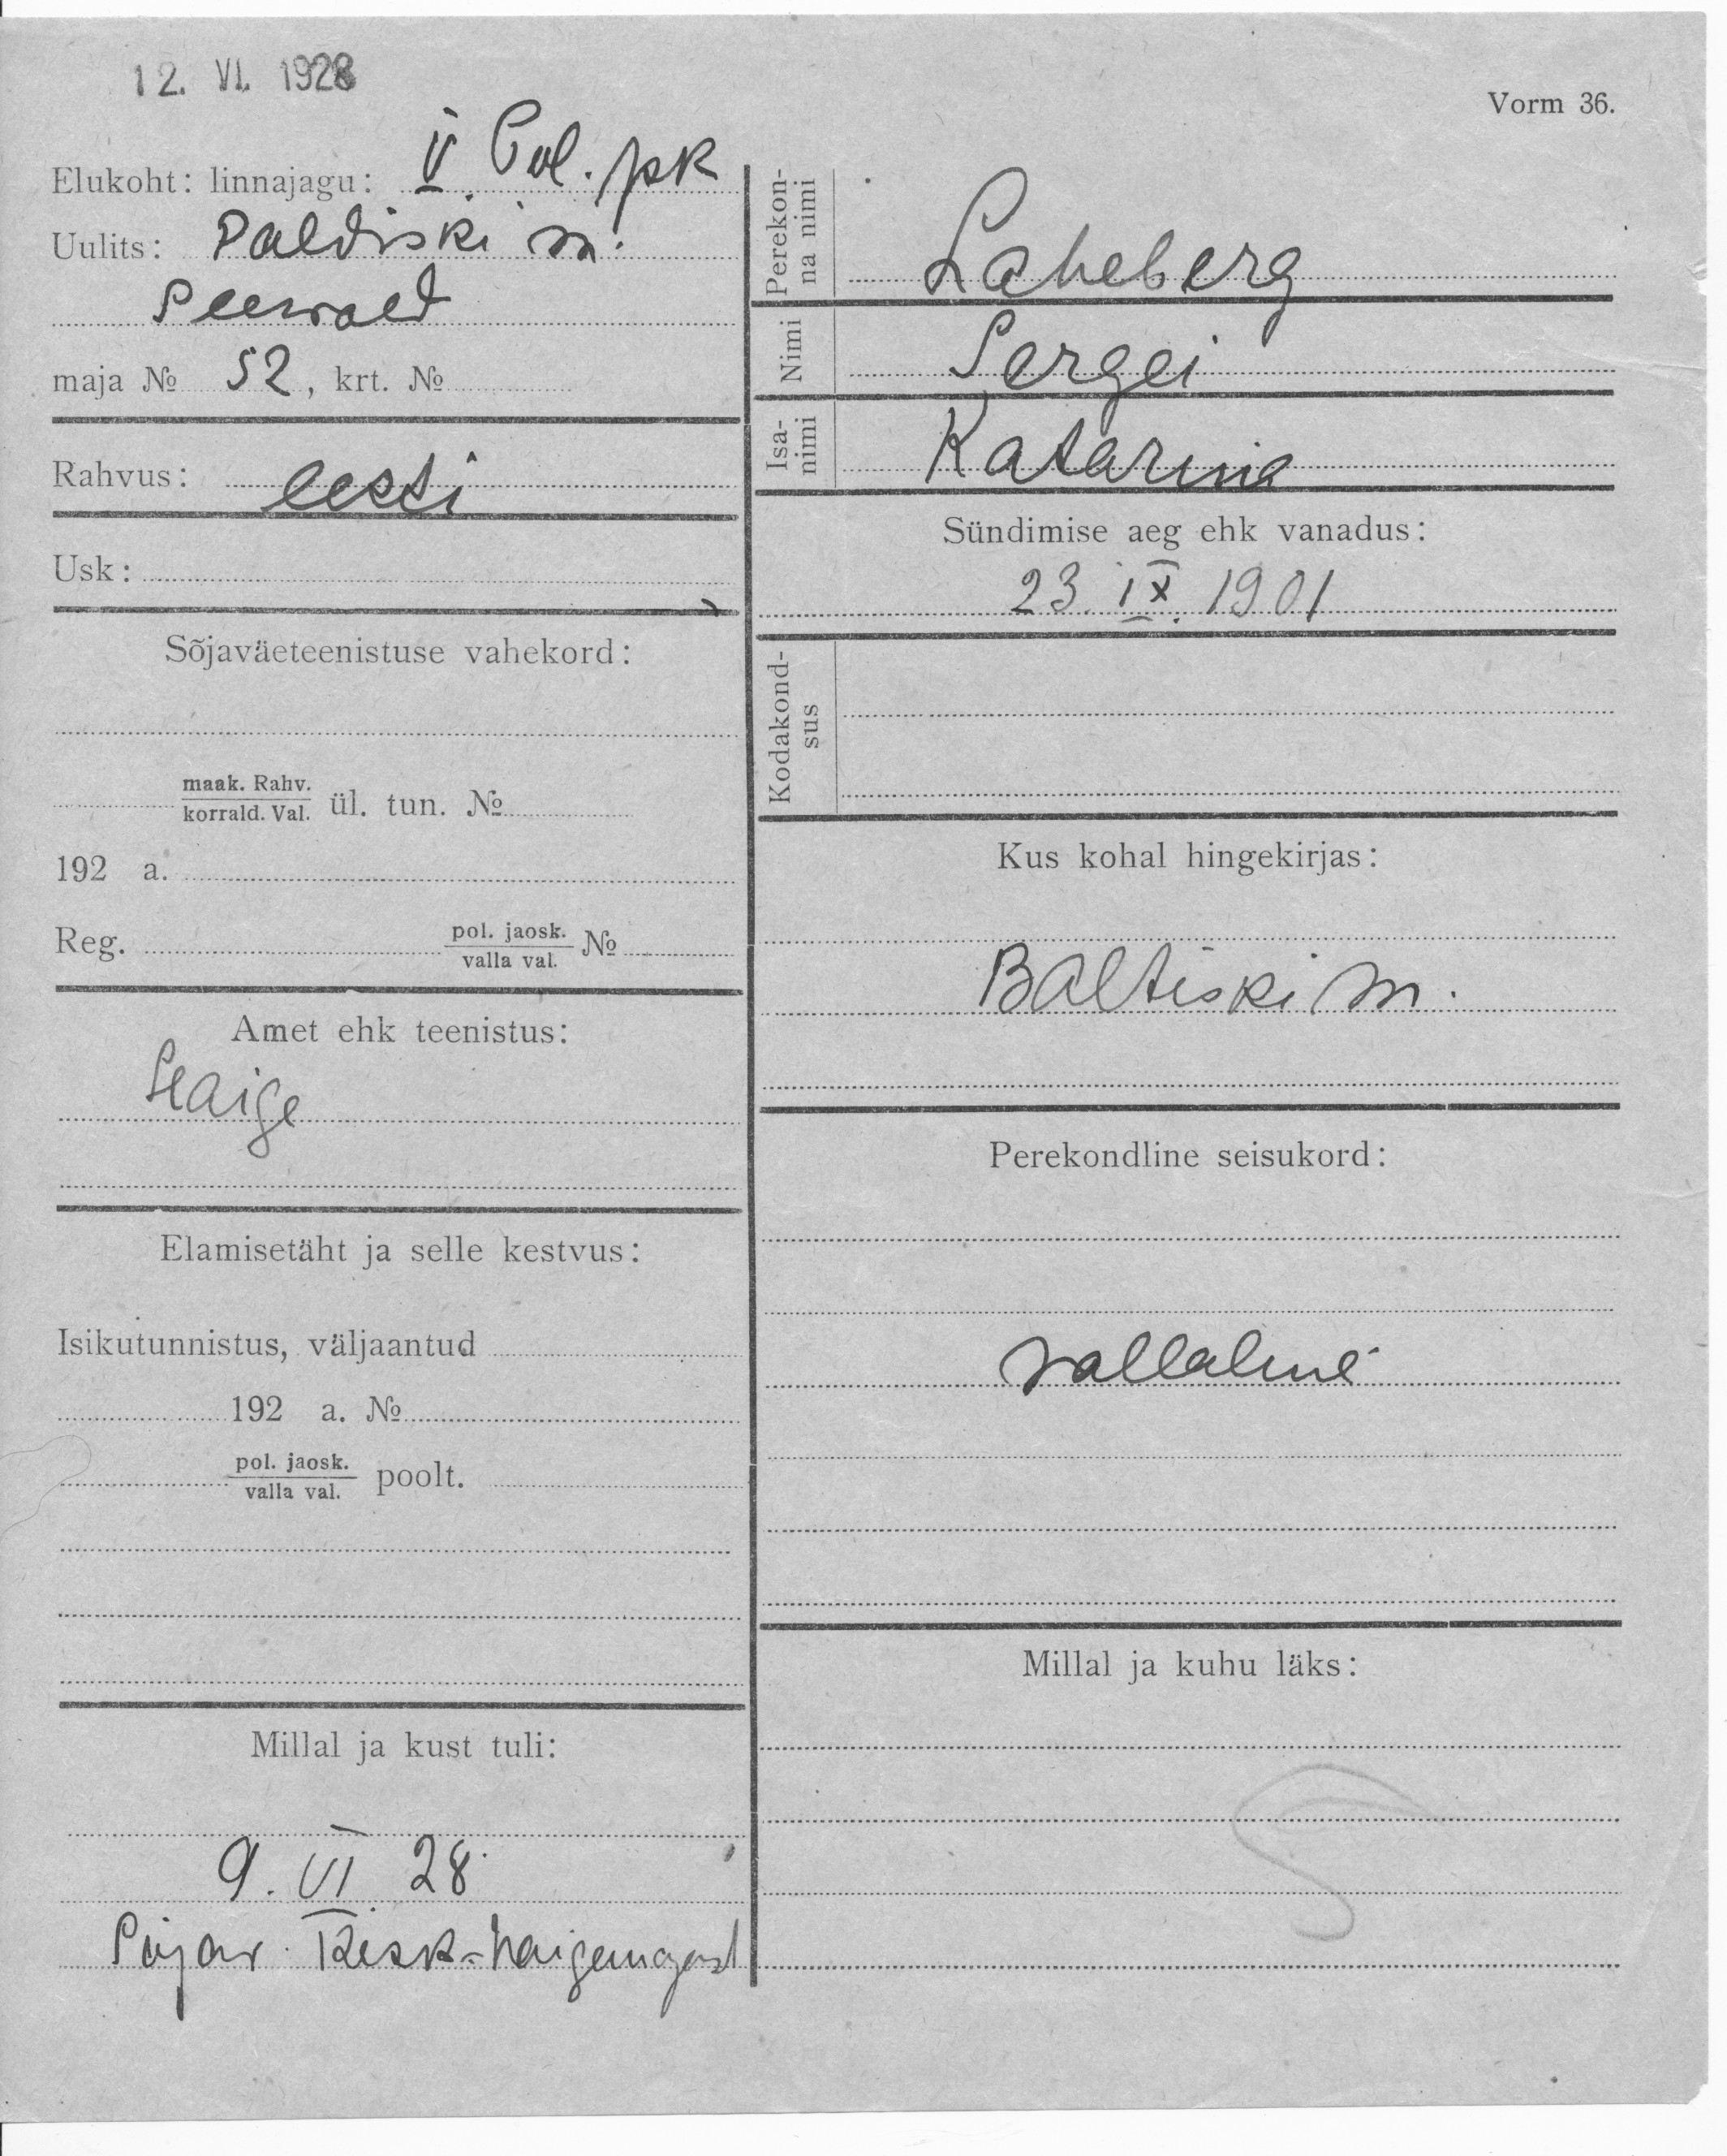 12. VI. 1928
Vorm 36.
Elukoht: linnajagu: V. Pol. jsk
Uulits: Paldiski m.
Seewald
maja № 52, krt. №
Rahvus: eesti
Usk:
Sõjaväeteenistuse vahekord:
maak. Rahv.
korrald. Val. ül. tun. №
192 a.
Reg. pol. jaosk. №
valla val.
Amet ehk teenistus:
Haige
Elamisetäht ja selle kestvus:
Isikutunnistus, väljaantud
192 a. №
pol. jaosk.
valla val. poolt.
Millal ja kust tuli:
9. VI. 28
Sõjav. Kesk-haigemajast
Perekon-
na nimi
Laheberg
Nimi
Sergei
Isa-
nimi
Katarina
Sündimise aeg ehk vanadus:
23. IX. 1901
Kodakond-
sus
Kus kohal hingekirjas:
Baltiski m.
Perekondline seisukord:
vallaline
Millal ja kuhu läks: